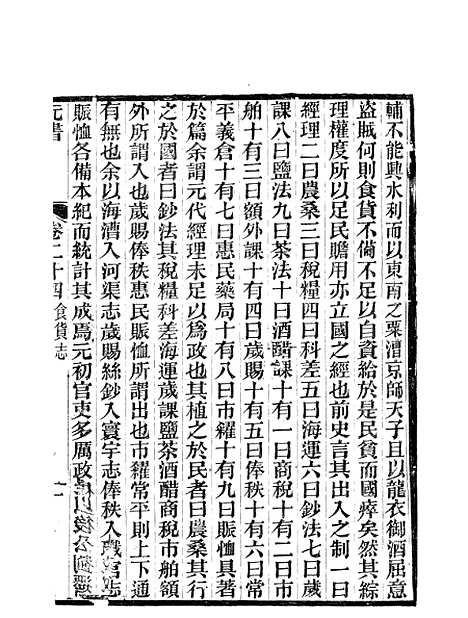 輔不能興水利而以東南之粟漕京師天子且以龍衣御酒屈意
盜賊何則食貨不備不足以自資給於是民貧而國瘁矣然其綜
理權度所以足民贍用亦立國之經也前史言其出入之制一曰
經理二曰農桑三曰稅糧四曰科差五曰海運六曰鈔法七曰歲
課八曰鹽法九曰茶法十曰酒醋課十有一曰商稅十有二曰市
舶十有三曰額外課十有四曰歲賜十有五曰俸秩十有六曰常
平義倉十有七曰惠民藥局十有八曰市糴十有九曰賑恤具著
於篇余謂元代經理未足以爲政也其植之於民者曰農桑其行
之於國者曰鈔法其稅糧科差海運歲課鹽茶酒醋商稅市舶額
外所謂入也歲賜俸秩惠民賑恤所謂出也市糴常平則上下通
有無也余以海漕入河渠志歲賜絲鈔入寰宇志俸秩入職官志
賑恤各備本紀而統計其成焉元初官吏多厲政
元書
卷二十四食貨志